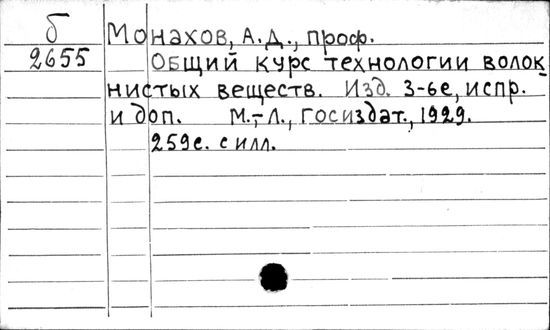 б
2655
Монахов, А.Д., проф.
Общий курс технологии волок-
нистых веществ. Изд. 3-ье, испр.
и доп. М.-Л., Госиздат., 1929.
259с. с илл.